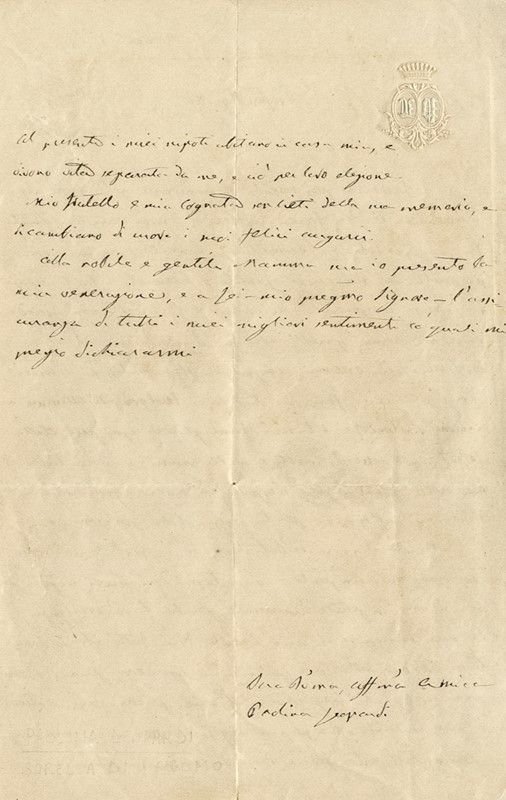 Al presente i miei nipoti abitano in casa mia, e
vivono vita separata da me, e ciò per loro elezione.
Mio fratello e mia cognata son lieti della sua memoria, e
ricambiano di cuore i suoi felici auguri.
Alla nobile e gentile Mamma sua io presento la
mia venerazione, e a Lei – mio pregmo Signore – l'assi
curanza di tutti i miei migliori sentimenti co' quali mi
pregio dichiararmi
Sua Devma, affma Amica
Paolina Leopardi